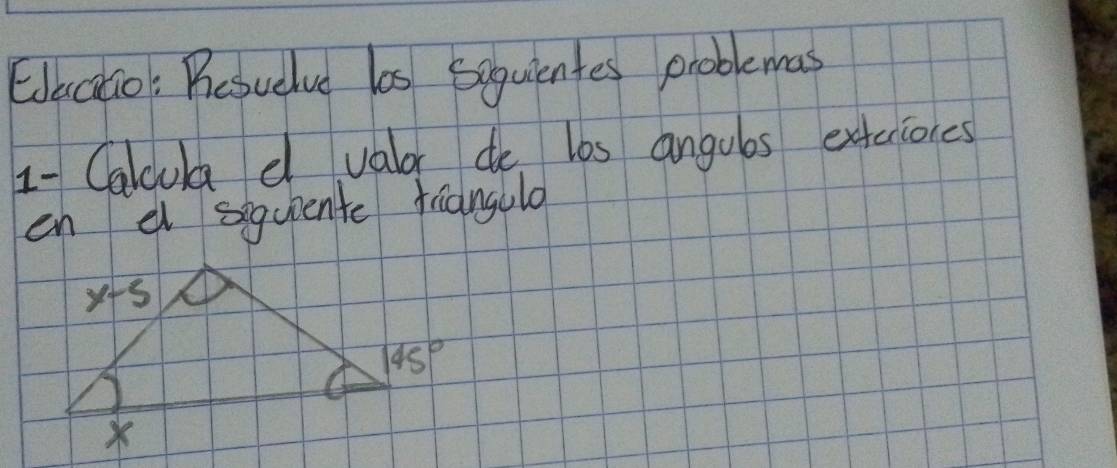 Ejercicio: Resuelve los siguientes problemas
1- Calcula el valor de los angulos exteriores
en el siguiente triangulo
x-5
145°
x